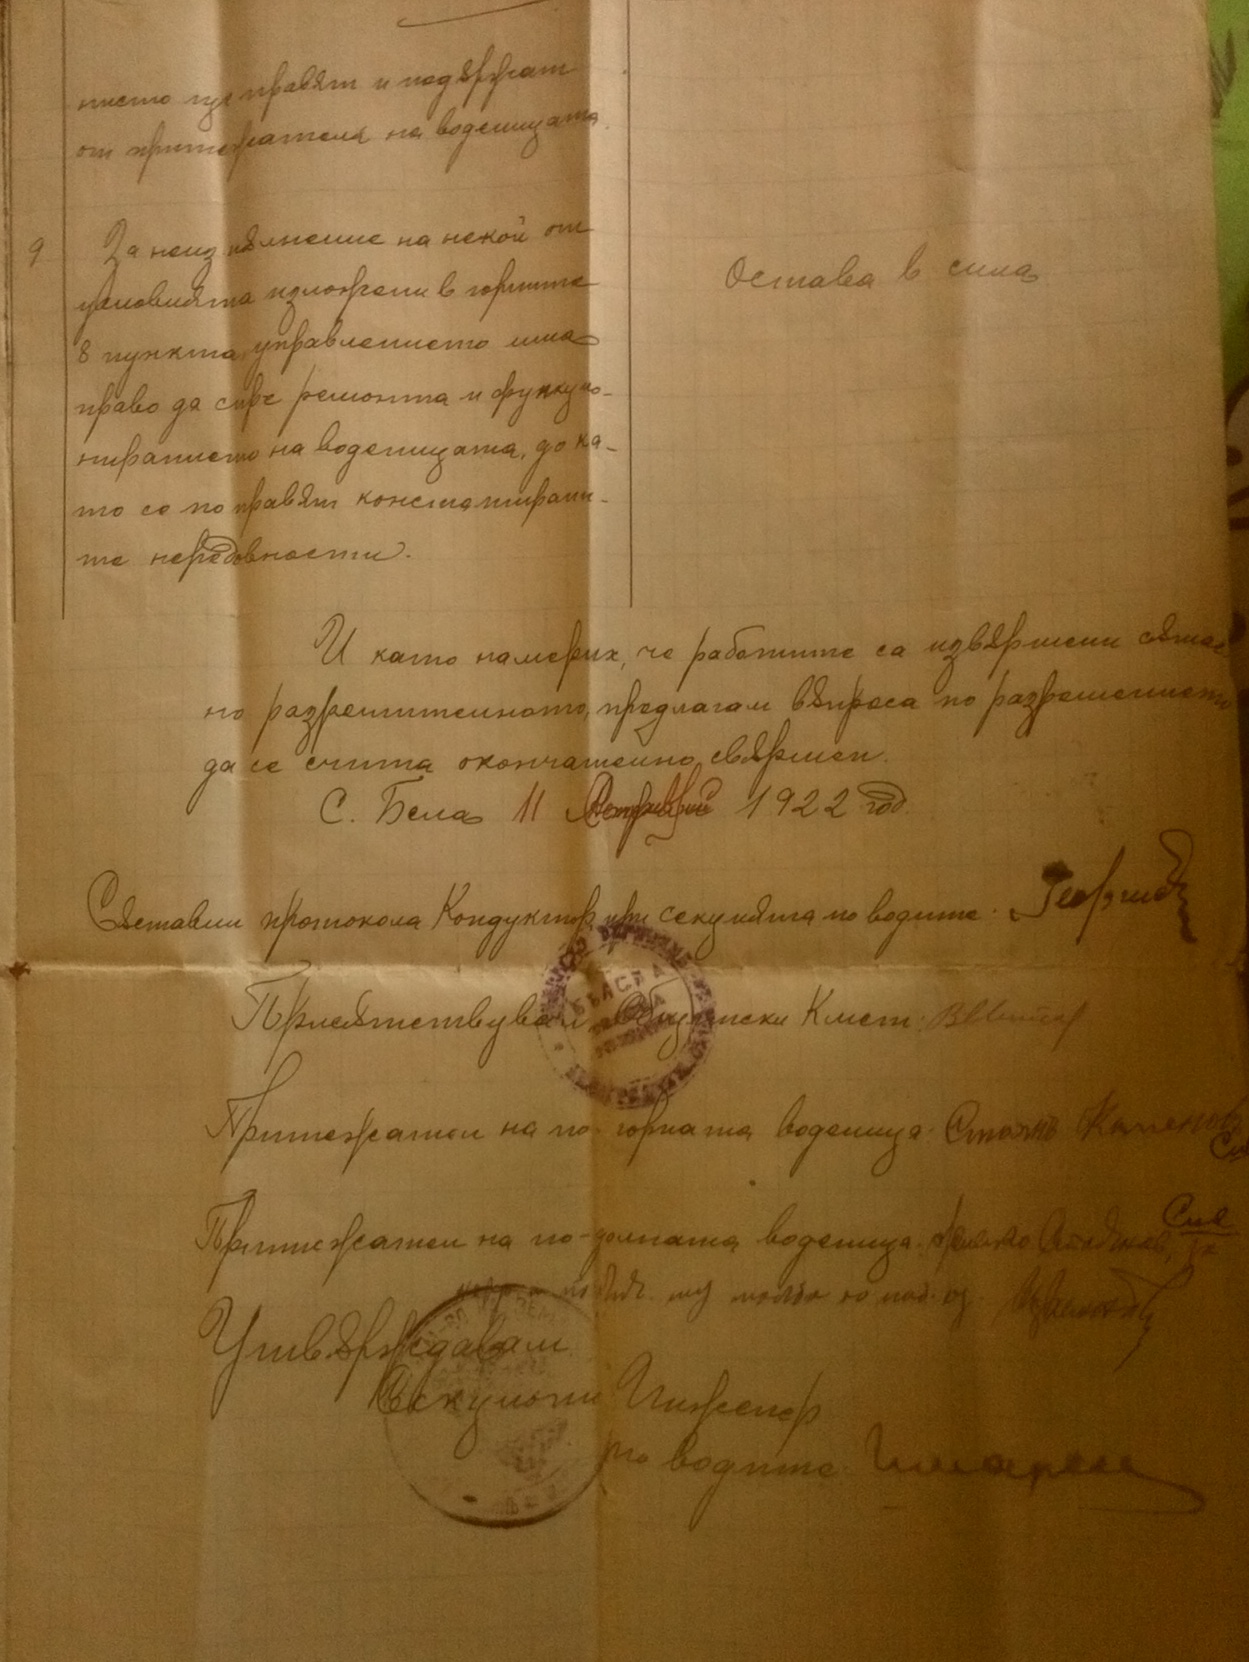 нието ще правят и подѫржат
от притежателя на воденицата.
9 За неизпѫлнение на некой от
условията изложени в горните Остава в сила
8 пункта, управлението има
право да спре ремонта и функцио-
нирането на воденицата, до ка-
то се поправят констатирани-
те нередовности.
И като намерих, че работите са извѫршени сѫглас
но разрешителното, предлагам вѫпроса по разрешението
да се счита окончателно свѫршен.
С. Бела 11 1922 год.
Сѫставил протокола Кондуктор при секцията по водите: Георгиев
Присѫтствували: Общински Кмет:
Притежател на по-горната воденица: Стоянъ Каменовъ
Притежател на по-долната воденица:
Утвѫрждавам
Секционен Инженер
по водите